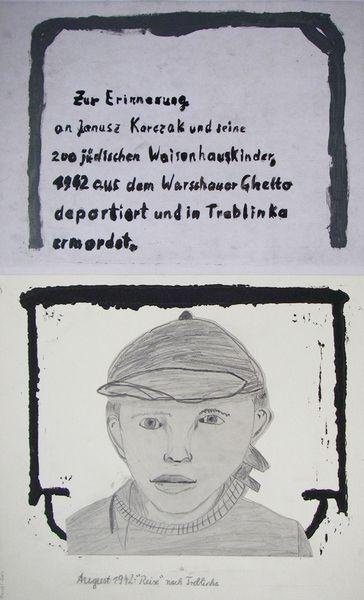 Zur Erinnerung
an Janusz Korczak und seine
200 jüdischen Waisenhauskinder,
1942 aus dem Warschauer Ghetto
deportiert und in Treblinka
ermordet.
August 1942: "Reise" nach Treblinka